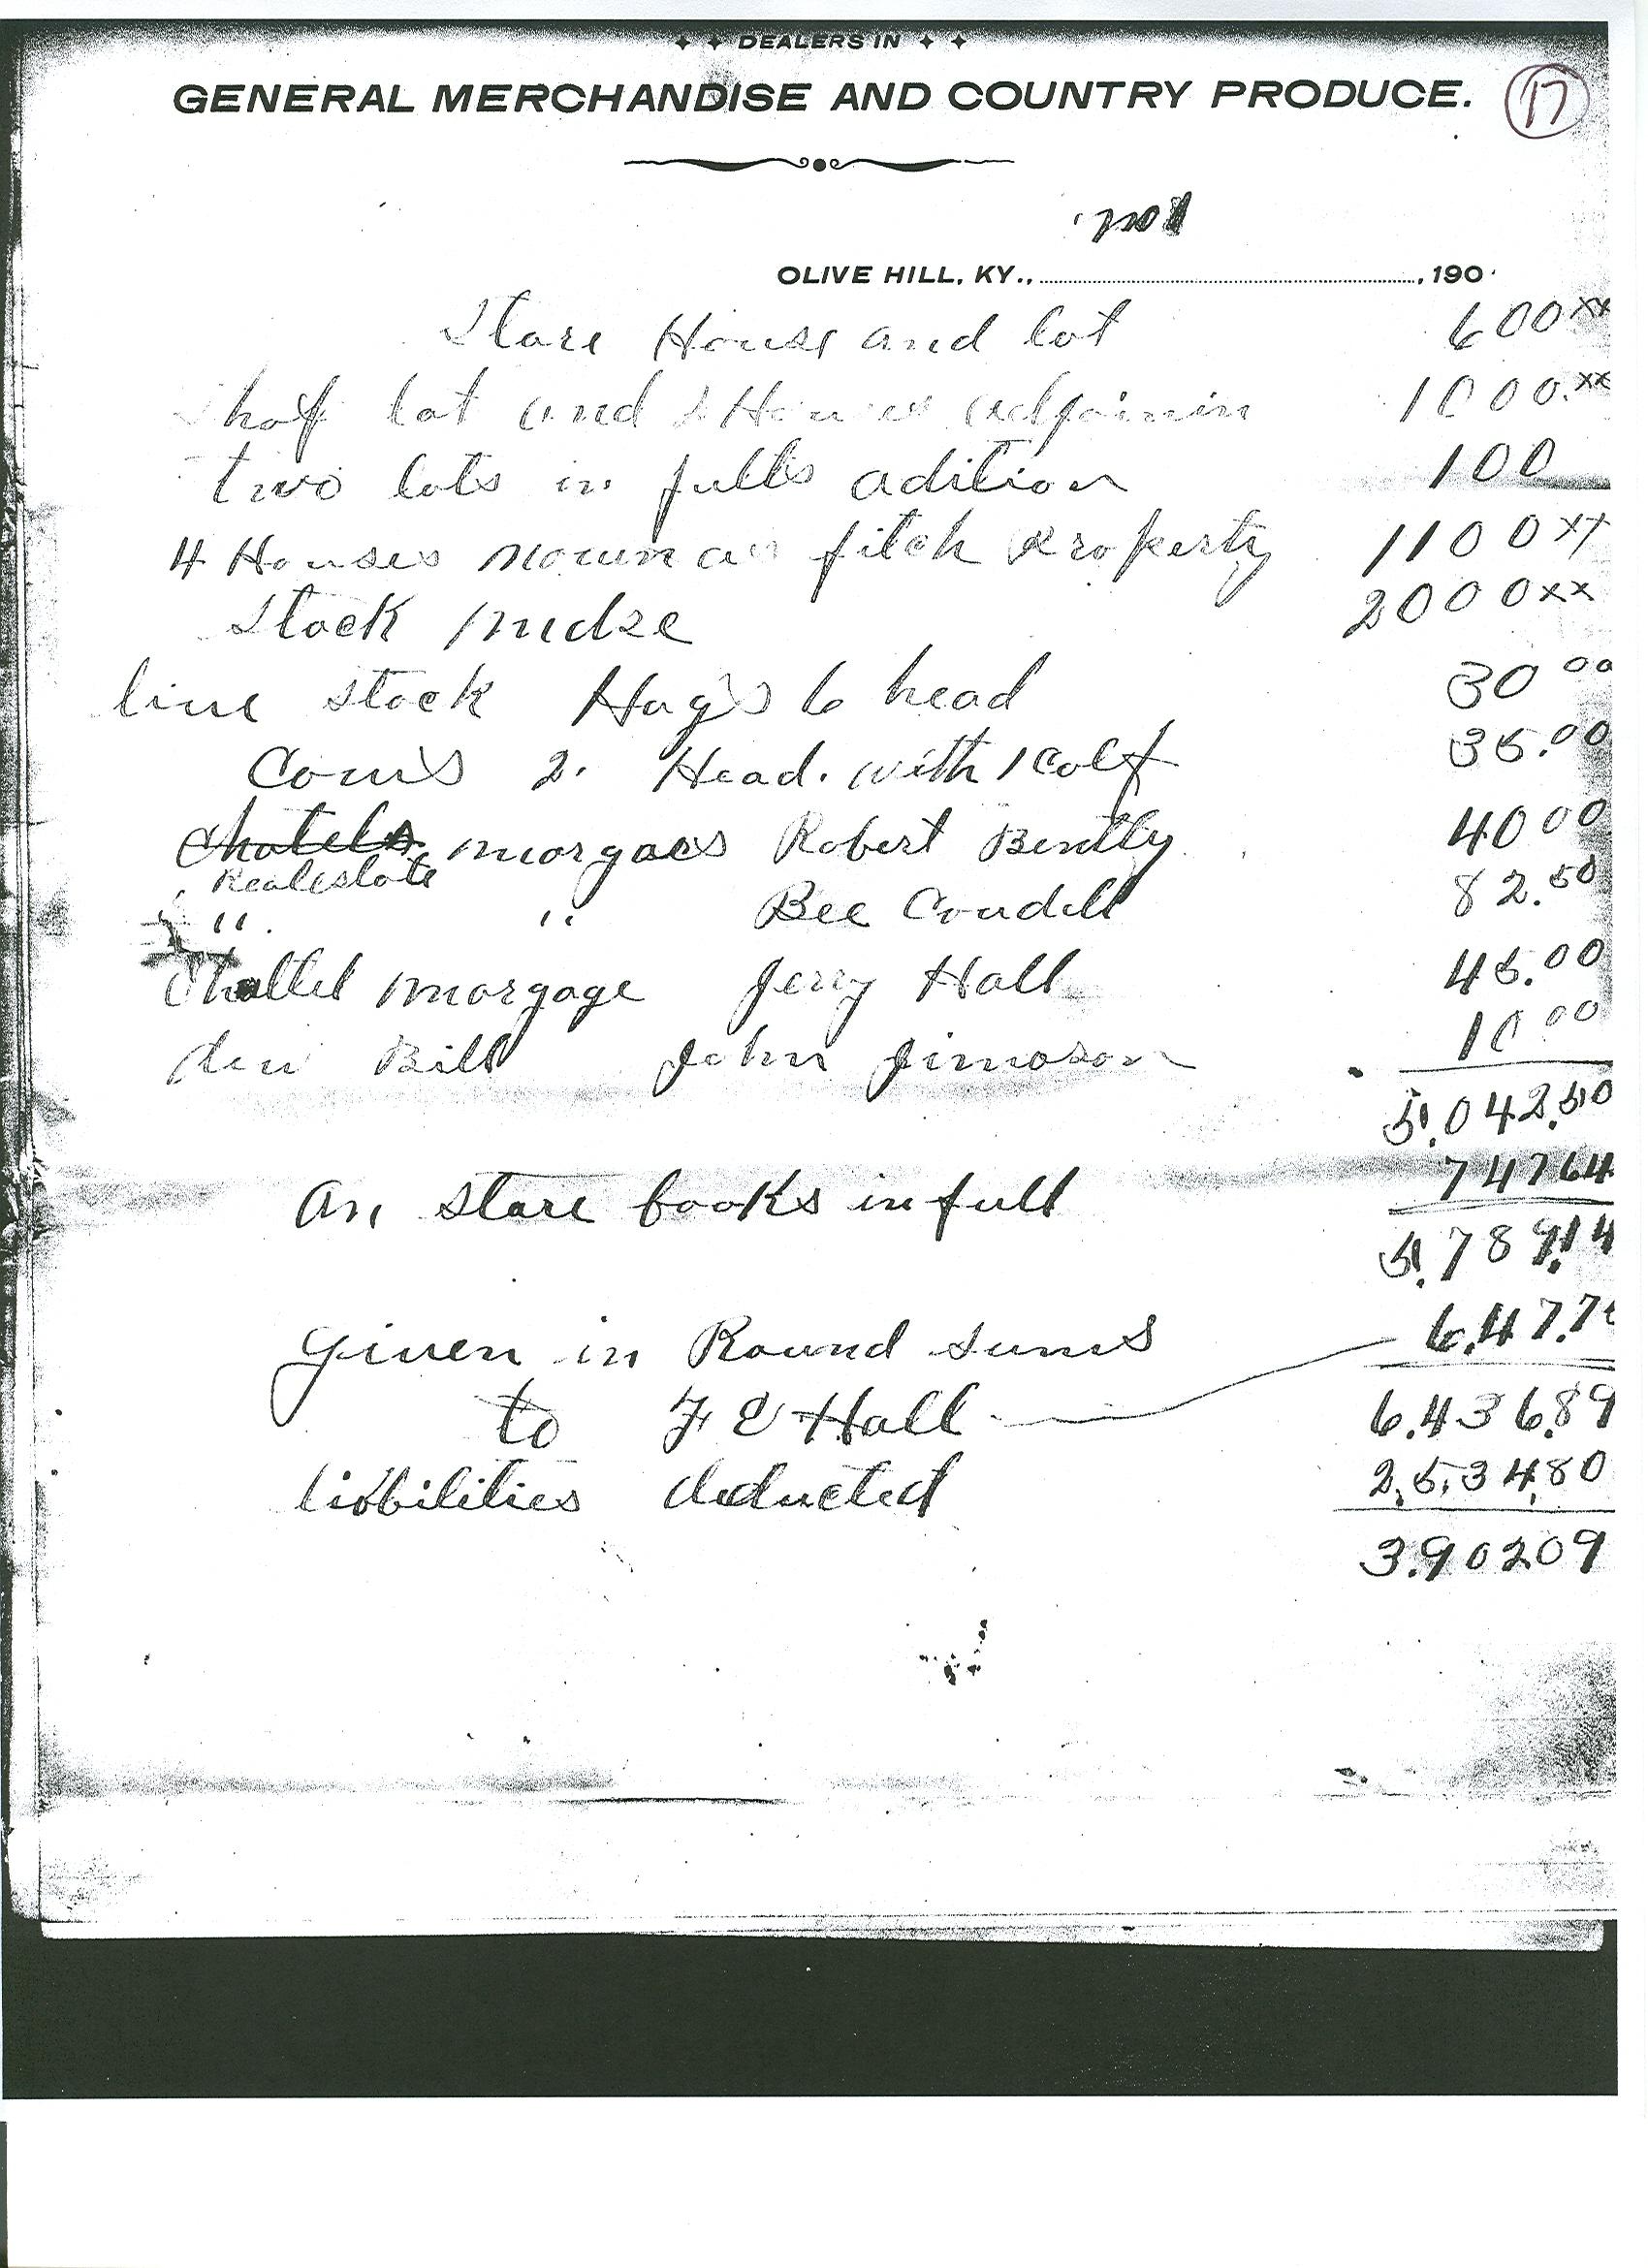 DEALERS IN
GENERAL MERCHANDISE AND COUNTRY PRODUCE. 17
OLIVE HILL, KY., , 190
Store House and lot 600 xx
half lot and 2 Houses adjoinin 1000.xx
two lots in fults adition 100
4 Houses nown as fitch property 1100 xx
Stock mdze 2000 xx
live stock Hogs 6 head 30 00
Cows 2. Head. with 1 Calf 35.00
Chatels morgaes Robert Bently 40 00
Realestate
" " Bee Caudill 82.50
Chattel morgage Jerry Hall 45.00
Bill John Jimoson 10 00
5,042.50
on store books in full 74764
5,789.14
given in Round sums 6,47.7
to F E Hall
6,436.89
liobilities deducted 2,534,80
3.90209